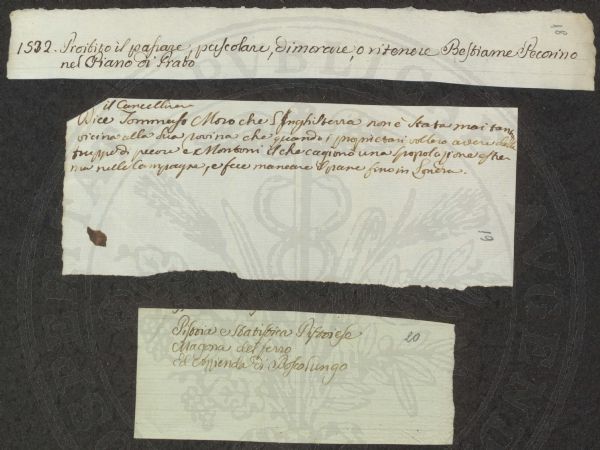 18
1532. Proibito il passare, pascolare, dimorare, o ritenere Bestiame Pecorino
nel Piano di Prato
il Cancelliere
Dice Tommaso Moro che l'Inghilterra non è stata mai tan
vicina alla sua rovina che quando i proprietari vollero avere delle
truppe di pecore e Montoni il che cagionò una spopolazione estre
ma nelle Campagne, e fece mancare il pane fino in Londra.
19
20
Pistoia e Pistoiese
Magona del ferro
ed Azzienda di Boscolungo